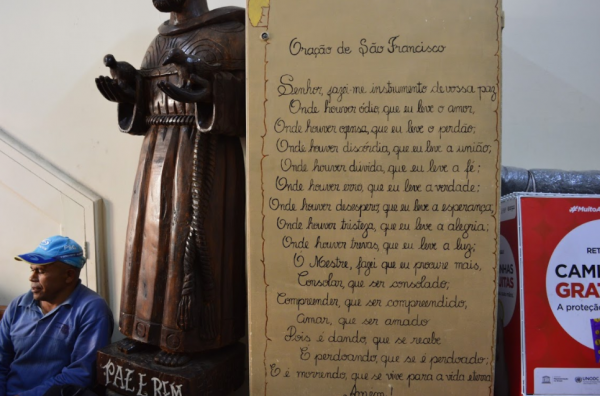 Oração de São Francisco
Senhor, fazei-me instrumento de vossa paz
Onde houver ódio, que eu leve o amor,
Onde houver ofensa, que eu leve o perdão;
Onde houver discórdia, que eu leve a união;
Onde houver dúvida, que eu leve a fé;
Onde houver erro, que eu leve a verdade;
Onde houver desespero, que eu leve a esperança;
Onde houver tristeza, que eu leve a alegria;
Onde houver trevas, que eu leve a luz;
O Mestre, fazei que eu procure mais,
Consolar, que ser consolado;
Compreender, que ser compreendido,
Amar, que ser amado
Pois é dando, que se recebe
E perdoando, que se é perdoado;
E é morrendo, que se vive para a vida eterna
Amém!
PAZ E BEM
RET
CAMI
GRAT
A proteção
UNESCO
UNODC